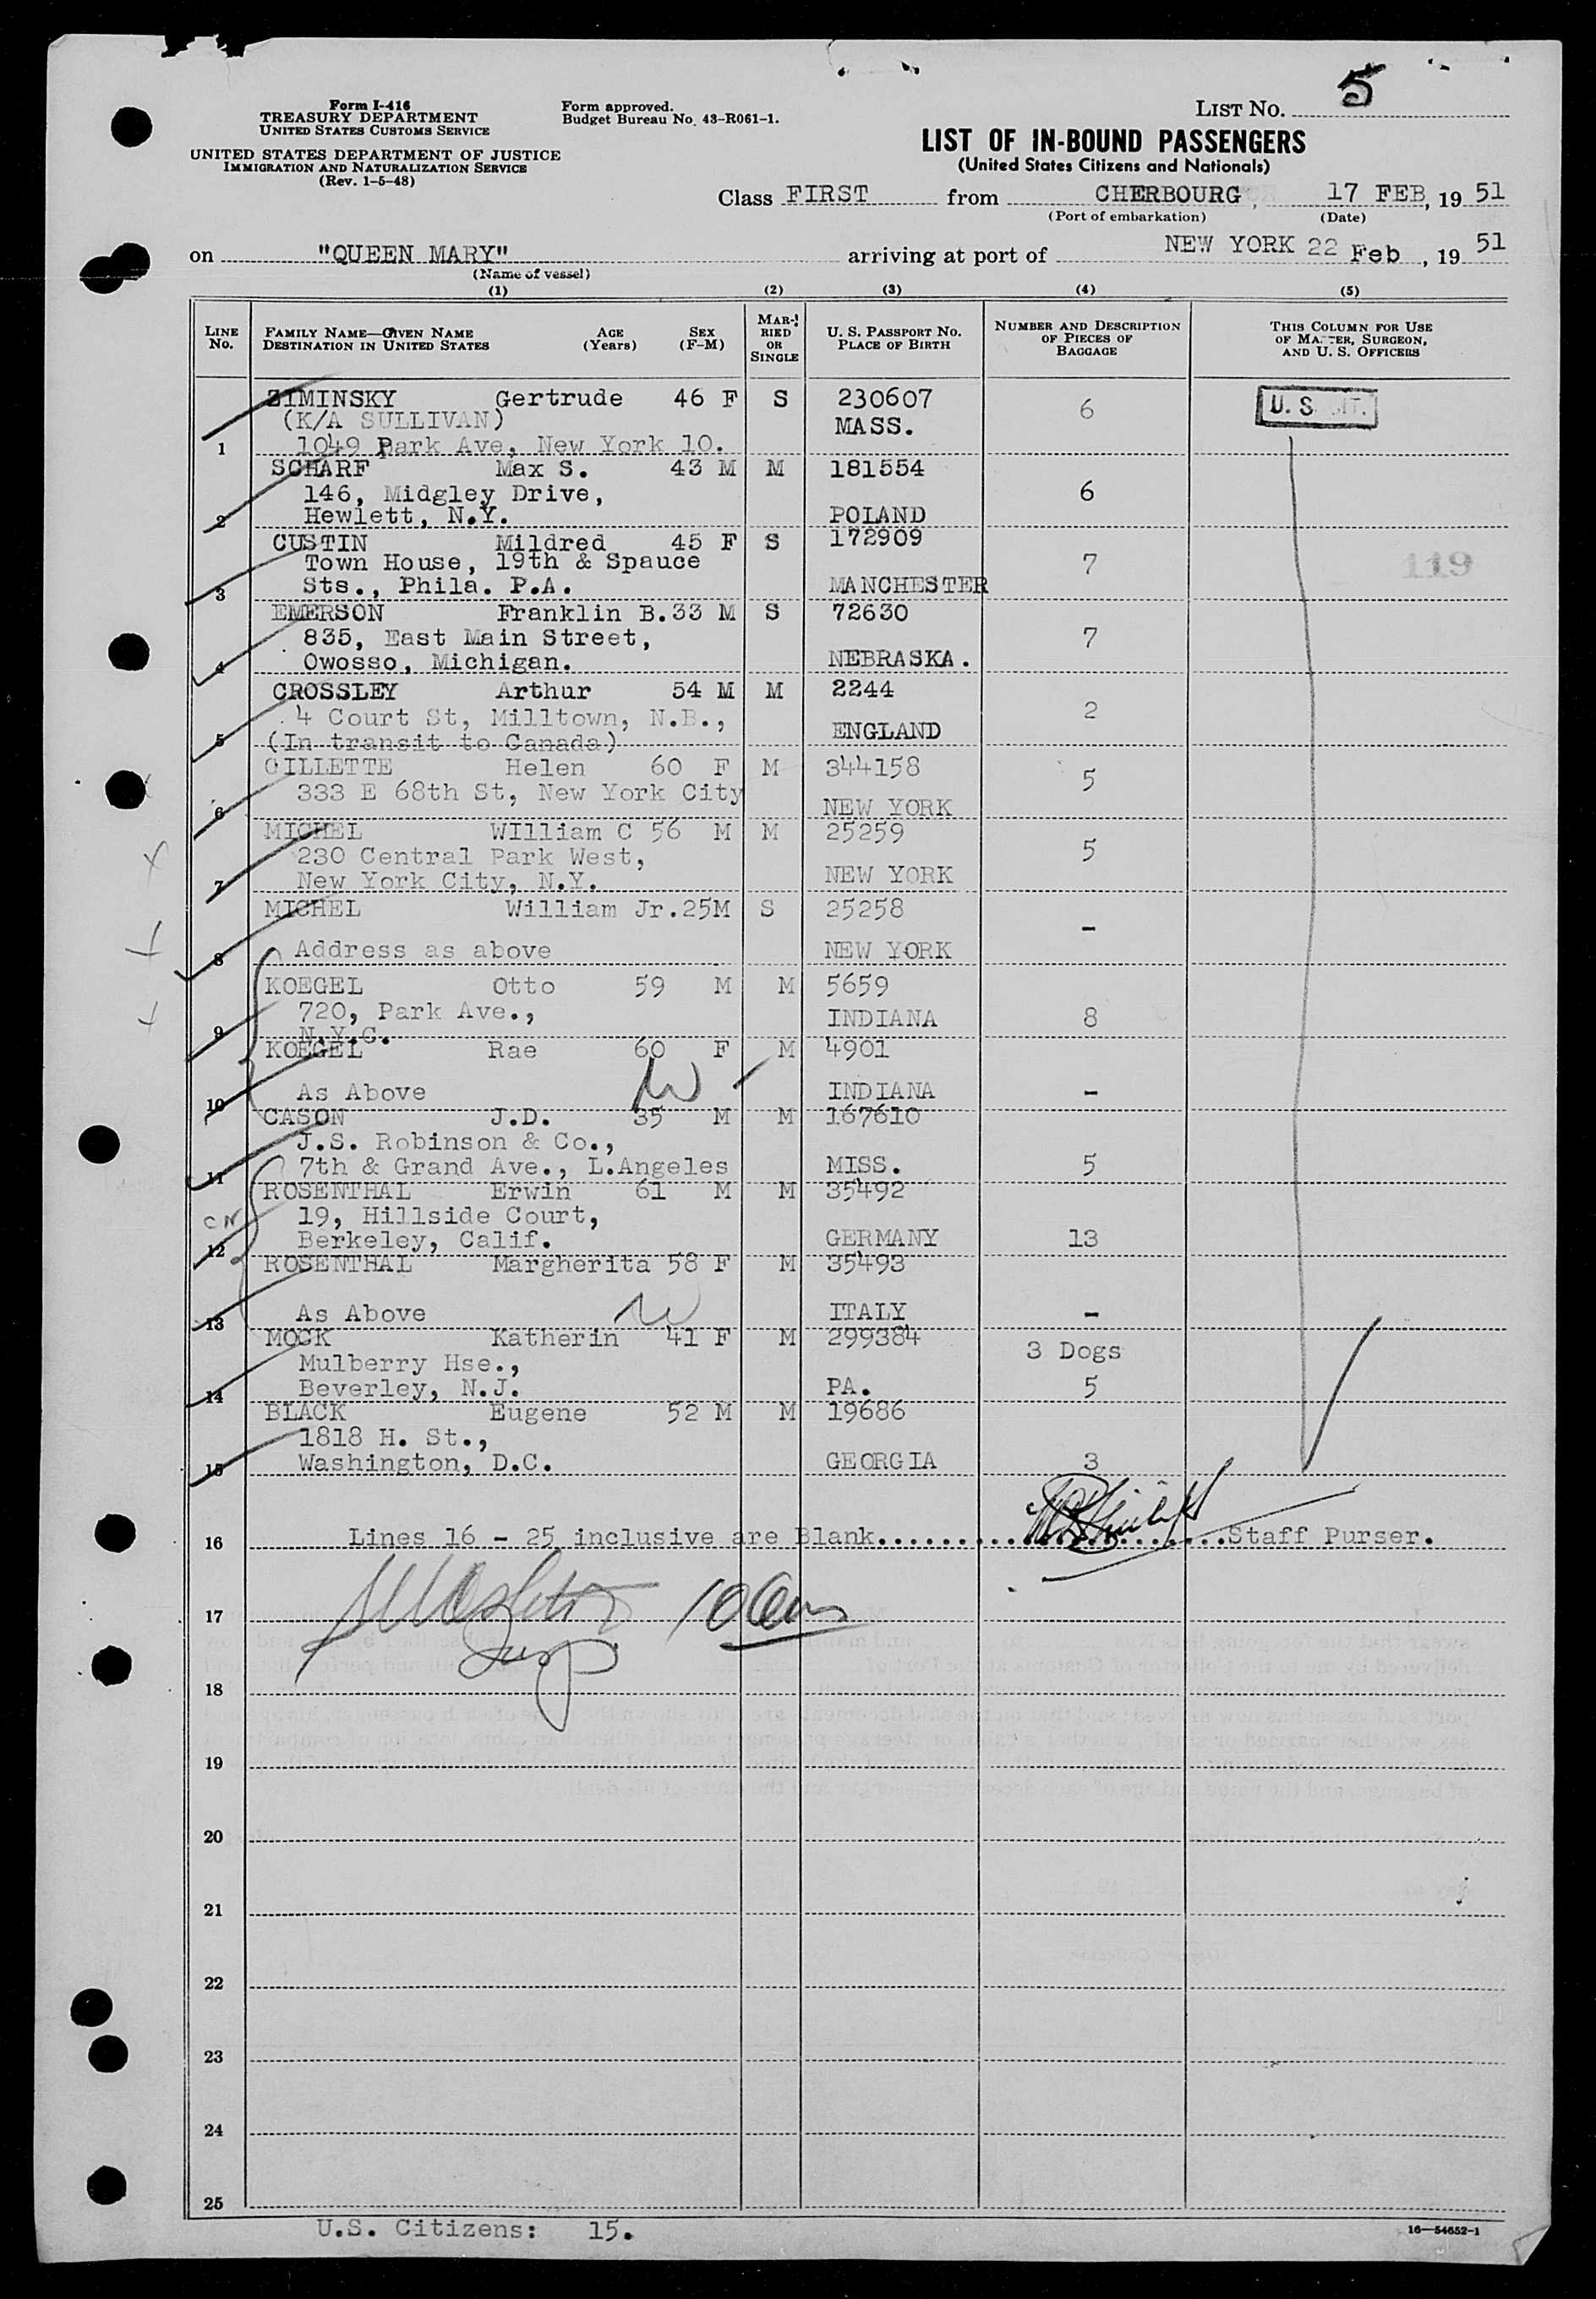 Form I-416
TREASURY DEPARTMENT
UNITED STATES CUSTOMS SERVICE
UNITED STATES DEPARTMENT OF JUSTICE
IMMIGRATION AND NATURALIZATION SERVICE
(Rev. 1-5-48)
Form approved.
Budget Bureau No. 43-R061-1.
LIST No. 5
LIST OF IN-BOUND PASSENGERS
(United States Citizens and Nationals)
Class FIRST from CHERBOURG, 17 FEB, 19 51
(Port of embarkation) (Date)
on "QUEEN MARY" arriving at port of NEW YORK 22 Feb, 19 51
(Name of vessel)
(1) (2) (3) (4) (5)
LINE No. FAMILY NAME—GIVEN NAME DESTINATION IN UNITED STATES AGE (Years) SEX (F-M) MARRIED OR SINGLE U. S. PASSPORT No. PLACE OF BIRTH NUMBER AND DESCRIPTION OF PIECES OF BAGGAGE THIS COLUMN FOR USE OF MASTER, SURGEON, AND U. S. OFFICERS
ZIMINSKY Gertrude 46 F S 230607 6 U. S. CIT.
(K/A SULLIVAN) MASS.
1 1049 Park Ave, New York 10.
SCHARF Max S. 43 M M 181554
146, Midgley Drive, 6
2 Hewlett, N.Y. POLAND
CUSTIN Mildred 45 F S 172909
Town House, 19th & Spauce 7 119
3 Sts., Phila. P.A. MANCHESTER
EMERSON Franklin B. 33 M S 72630
835, East Main Street, 7
4 Owosso, Michigan. NEBRASKA.
CROSSLEY Arthur 54 M M 2244
4 Court St, Milltown, N.B., 2
5 (In transit to Canada) ENGLAND
GILLETTE Helen 60 F M 344158
333 E 68th St, New York City 5
6 NEW YORK
MICHEL WIlliam C 56 M M 25259
230 Central Park West, 5
7 New York City, N.Y. NEW YORK
MICHEL William Jr. 25M S 25258
-
8 Address as above NEW YORK
KOEGEL Otto 59 M M 5659
720, Park Ave., INDIANA 8
9 N.Y.C.
KOEGEL Rae 60 F M 4901
W
10 As Above INDIANA -
CASON J.D. 35 M M 167610
J.S. Robinson & Co.,
11 7th & Grand Ave., L.Angeles MISS. 5
ROSENTHAL Erwin 61 M M 35492
CN 19, Hillside Court,
12 Berkeley, Calif. GERMANY 13
ROSENTHAL Margherita 58 F M 35493
13 As Above W ITALY -
MOCK Katherin 41 F M 299384
Mulberry Hse., 3 Dogs
14 Beverley, N.J. PA. 5
BLACK Eugene 52 M M 19686
1818 H. St.,
15 Washington, D.C. GEORGIA 3
16 Lines 16 - 25 inclusive are Blank........................Staff Purser.
17
Insp
18
19
20
21
22
23
24
25
U.S. Citizens: 15.
16—54652-1